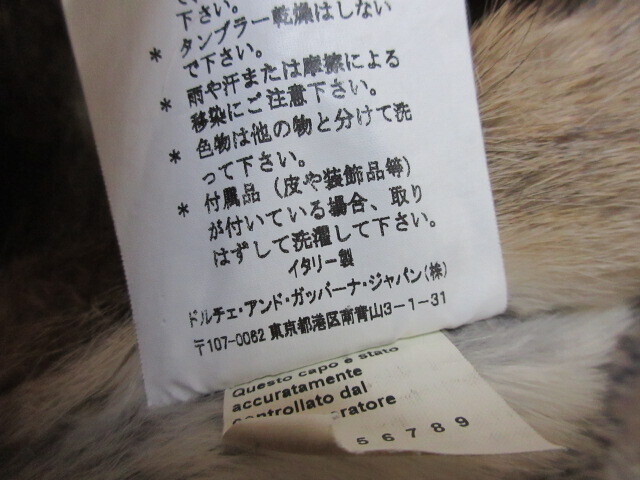 下さい。
* タンブラー乾燥はしない
で下さい。
* 雨や汗または摩擦による
移染にご注意下さい。
* 色物は他の物と分けて洗
って下さい。
* 付属品（皮や装飾品等）
が付いている場合、取り
はずして洗濯して下さい。
イタリー製
ドルチェ・アンド・ガッバーナ・ジャパン(株)
〒107-0062 東京都港区南青山3-1-31
Questo capo è stato
accuratamente
controllato dal
5 6 7 8 9